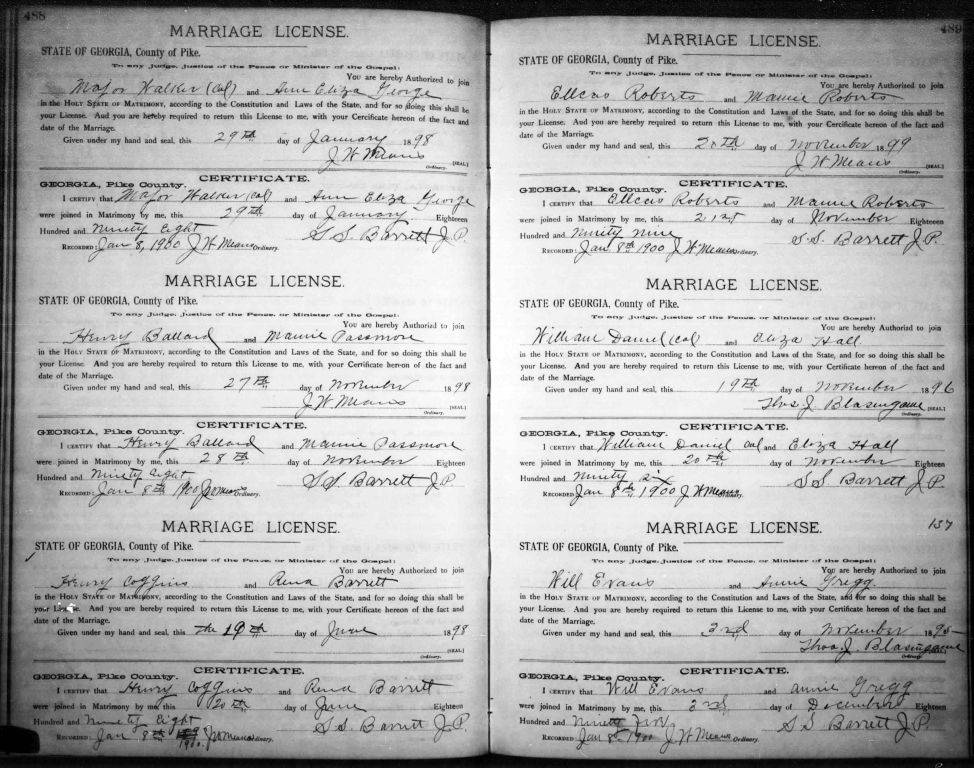 488
MARRIAGE LICENSE.
STATE OF GEORGIA, County of Pike.
To any Judge, Justice of the Peace or Minister of the Gospel:
You are hereby Authorized to join
Major Walker (Col) and Ann Eliza George
in the HOLY STATE OF MATRIMONY, according to the Constitution and Laws of the State, and for so doing this shall be
your License. And you are hereby required to return this License to me, with your Certificate hereon of the fact and
date of the Marriage.
Given under my hand and seal, this 29th day of January 1898
J W Means [SEAL.]
Ordinary.
CERTIFICATE.
GEORGIA, Pike County.
I CERTIFY that Major Walker (Col) and Ann Eliza George
were joined in Matrimony by me, this 29th day of January Eighteen
Hundred and Ninety Eight S S Barrett J P.
RECORDED: Jan 8, 1900 J W Means Ordinary.
MARRIAGE LICENSE.
STATE OF GEORGIA, County of Pike.
To any Judge, Justice of the Peace or Minister of the Gospel:
You are hereby Authorized to join
Henry Ballard and Mamie Passmore
in the HOLY STATE OF MATRIMONY, according to the Constitution and Laws of the State, and for so doing this shall be
your License. And you are hereby required to return this License to me, with your Certificate hereon of the fact and
date of the Marriage.
Given under my hand and seal, this 27th day of November 1898
J W Means [SEAL.]
Ordinary.
CERTIFICATE.
GEORGIA, Pike County.
I CERTIFY that Henry Ballard and Mamie Passmore
were joined in Matrimony by me, this 28th day of November Eighteen
Hundred and Ninety Eight S S Barrett J P.
RECORDED: Jan 8th 1900 J W Means Ordinary.
MARRIAGE LICENSE.
STATE OF GEORGIA, County of Pike.
To any Judge, Justice of the Peace or Minister of the Gospel:
You are hereby Authorized to join
Henry Coggins and Rena Barrett
in the HOLY STATE OF MATRIMONY, according to the Constitution and Laws of the State, and for so doing this shall be
your License. And you are hereby required to return this License to me, with your Certificate hereon of the fact and
date of the Marriage.
Given under my hand and seal, this the 19th day of June 1898
[SEAL.]
Ordinary.
CERTIFICATE.
GEORGIA, Pike County.
I CERTIFY that Henry Coggins and Rena Barrett
were joined in Matrimony by me, this 20th day of June Eighteen
Hundred and Ninety Eight S S Barrett J P.
RECORDED: Jan 8th 1900. J W Means Ordinary.
489
MARRIAGE LICENSE.
STATE OF GEORGIA, County of Pike.
To any Judge, Justice of the Peace or Minister of the Gospel:
You are hereby Authorized to join
Roberts and Mamie Roberts
in the HOLY STATE OF MATRIMONY, according to the Constitution and Laws of the State, and for so doing this shall be
your License. And you are hereby required to return this License to me, with your Certificate hereon of the fact and
date of the Marriage.
Given under my hand and seal, this 20th day of November 1899
J W Means [SEAL.]
Ordinary.
CERTIFICATE.
GEORGIA, Pike County.
I CERTIFY that Roberts and Mamie Roberts
were joined in Matrimony by me, this 21st day of November Eighteen
Hundred and Ninety Nine S.S. Barrett J P.
RECORDED: Jan 8th 1900 J W Means Ordinary.
MARRIAGE LICENSE.
STATE OF GEORGIA, County of Pike.
To any Judge, Justice of the Peace or Minister of the Gospel:
You are hereby Authorized to join
William Daniel (Col) and Eliza Hall
in the HOLY STATE OF MATRIMONY, according to the Constitution and Laws of the State, and for so doing this shall be
your License. And you are hereby required to return this License to me, with your Certificate hereon of the fact and
date of the Marriage.
Given under my hand and seal, this 19th day of November 1896
Thos. J. Blasingame [SEAL.]
Ordinary.
CERTIFICATE.
GEORGIA, Pike County.
I CERTIFY that William Daniel Col and Eliza Hall
were joined in Matrimony by me, this 20th day of November Eighteen
Hundred and Ninety S S Barrett J P.
RECORDED: Jan 8th 1900 J W Means Ordinary.
MARRIAGE LICENSE. 137
STATE OF GEORGIA, County of Pike.
To any Judge, Justice of the Peace or Minister of the Gospel:
You are hereby Authorized to join
Will Evans and Annie Gregg
in the HOLY STATE OF MATRIMONY, according to the Constitution and Laws of the State, and for so doing this shall be
your License. And you are hereby required to return this License to me, with your Certificate hereon of the fact and
date of the Marriage.
Given under my hand and seal, this 3rd day of November 1895
Thos. J. Blasingame
Ordinary.
CERTIFICATE.
GEORGIA, Pike County.
I CERTIFY that Will Evans and Annie Gregg
were joined in Matrimony by me, this 3rd day of December Eighteen
Hundred and Ninety Five S S Barrett J P.
RECORDED: Jan 8th 1900 J W Means Ordinary.